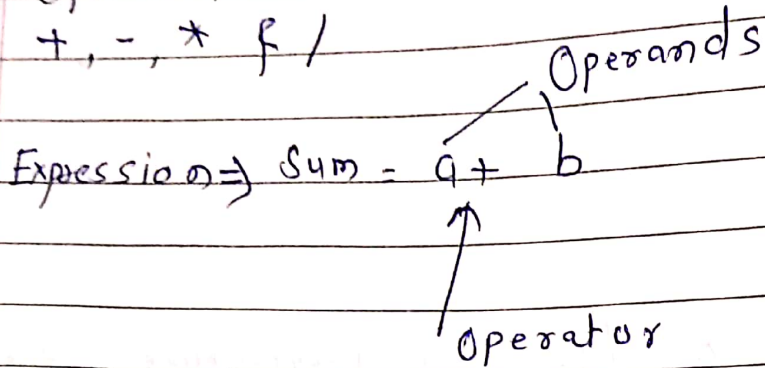 +, -, * & /
Operands
Expression ⇒ Sum = a + b
Operator